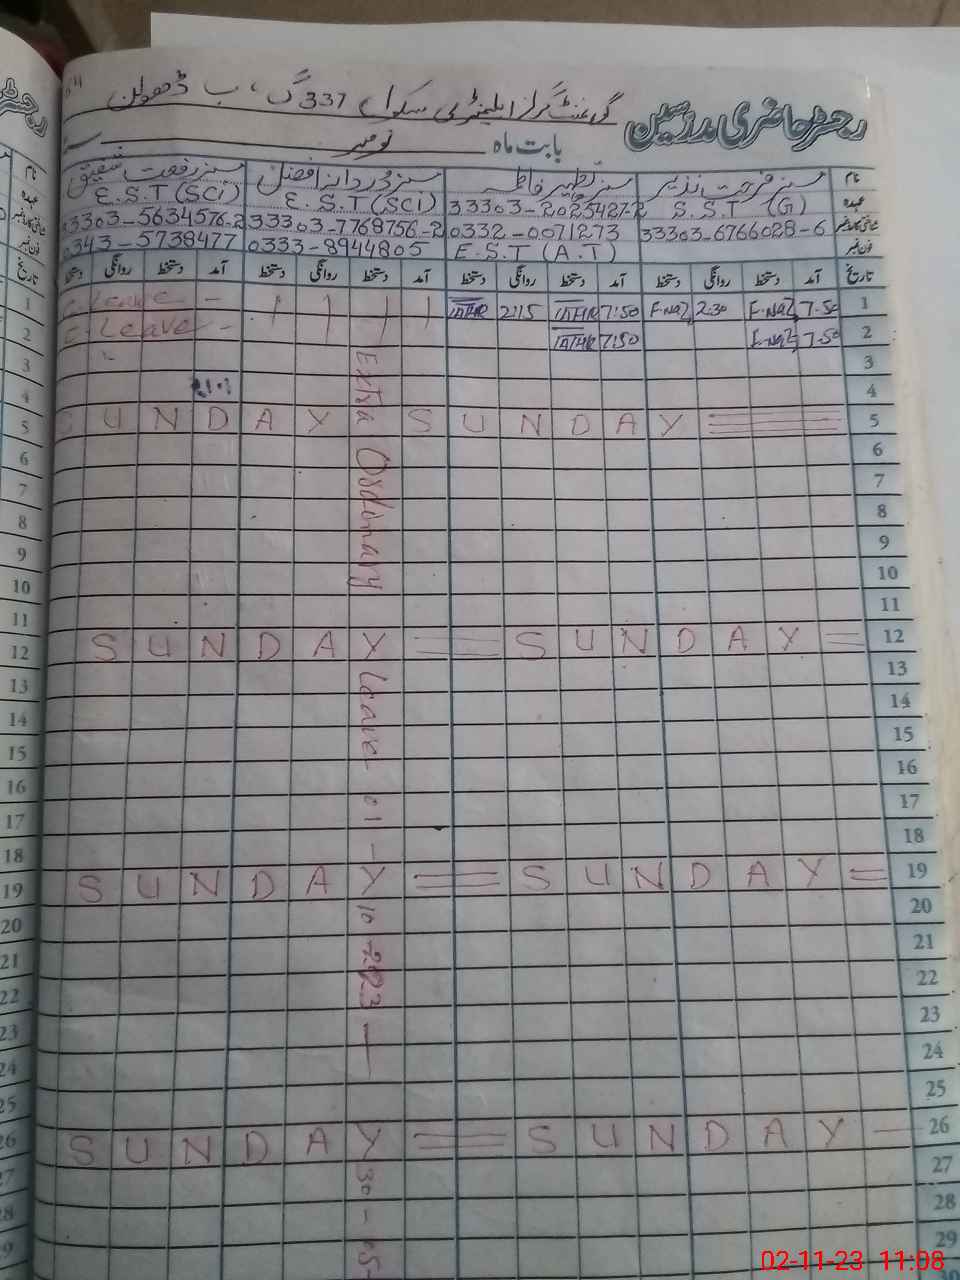 رجسٹر حاضری مدرسین
گورنمنٹ گرلز ایلیمنٹری سکول 337 گ، ب
بابت ماہ نومبر
نام مسز فرحت نذیر مسز تطہیر فاطمہ مسز دُردانہ افضل مسز رفعت شفیق
عہدہ S.S.T (G) 33303-2025427-2 E.S.T (SCI) E.S.T (SCI)
شناختی کارڈ نمبر 33303-6766028-6 0332-0071273 33303-7768756-2 33303-5634576-2
فون نمبر E.S.T (A.T) 0333-8944805 0343-5738477
تاریخ آمد دستخط روانگی دستخط آمد دستخط روانگی دستخط آمد دستخط روانگی دستخط آمد دستخط روانگی دستخط
1 7.50 F.Naz 2:30 F.Naz 7:50 TATHIR 2:15 TATHIR Leave -
2 7.50 F.Naz 7:50 TATHIR Leave -
3
4
5 SUNDAY SUNDAY
6
7
8
9
10
11
12 SUNDAY SUNDAY
13
14
15
16
17
18
19 SUNDAY SUNDAY
20
21
22
23
24
25
26 SUNDAY SUNDAY
27
28
29
30
Extra Ordinary Leave 01 - 10 - 2023 — 30 - 05 -
02-11-23 11:08